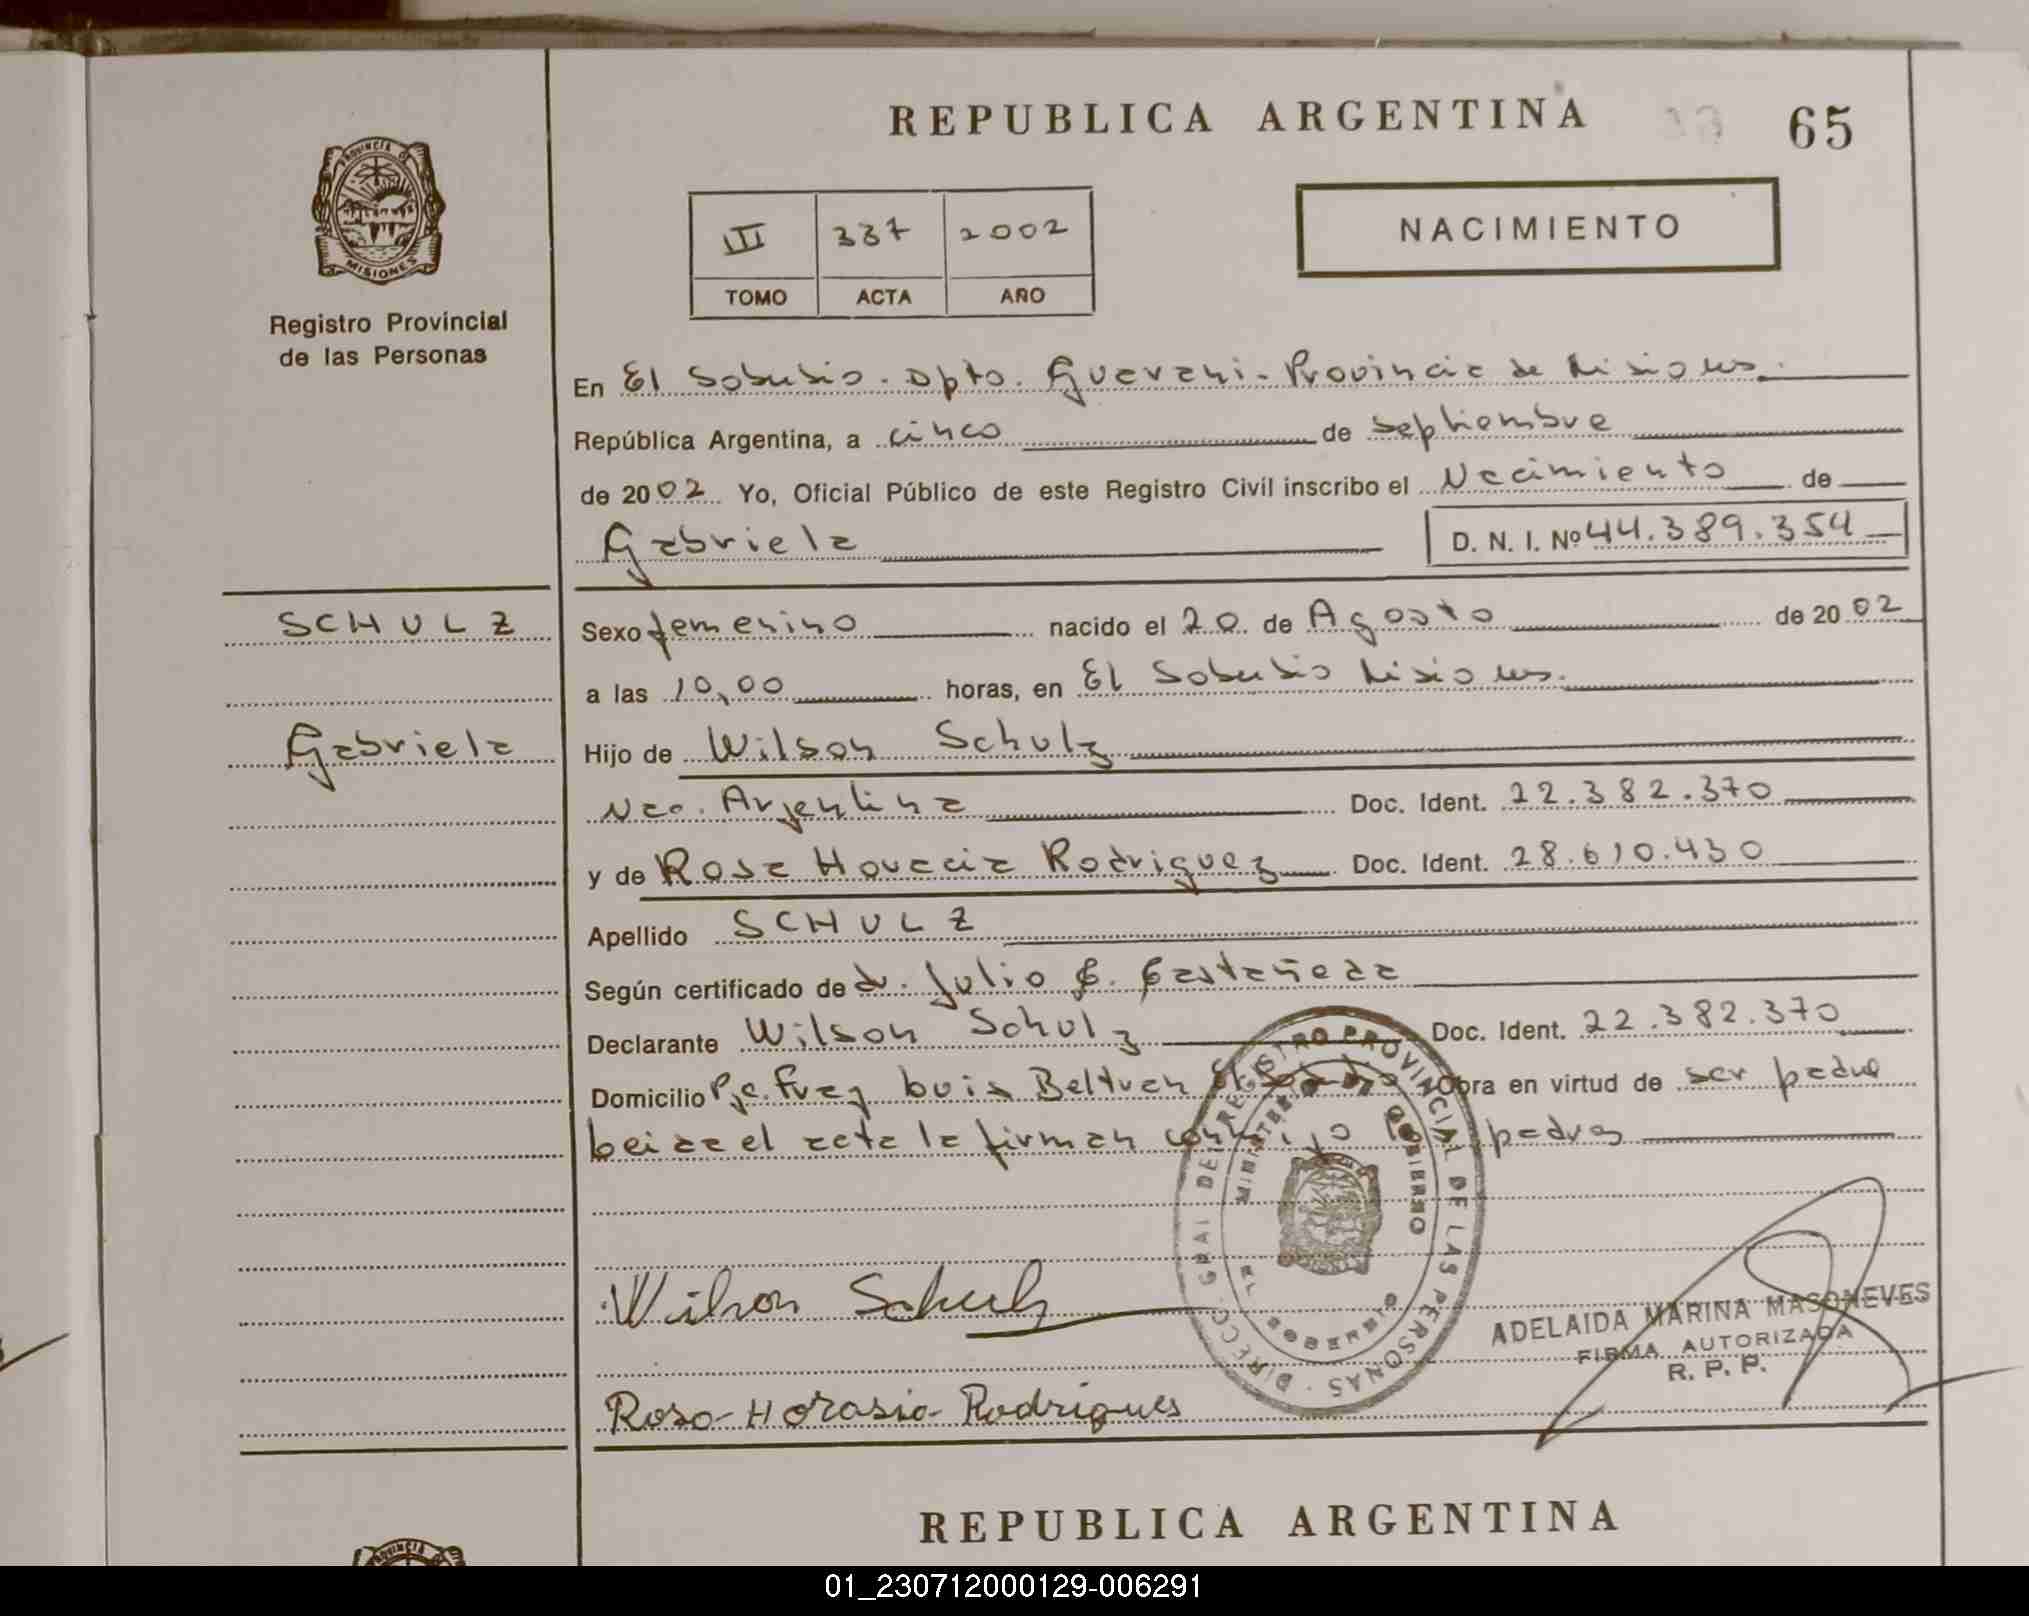 REPUBLICA ARGENTINA
65
PROVINCIA DE
MISIONES
Registro Provincial
de las Personas
III 337 2002
TOMO ACTA AÑO
NACIMIENTO
En El Soberbio. Dpto. Guarani. Provincia de Misiones.
República Argentina, a cinco de septiembre
de 2002 Yo, Oficial Público de este Registro Civil inscribo el Nacimiento de
Gabriela D. N. I. Nº 44.389.354
SCHULZ
Sexo femenino nacido el 20 de Agosto de 2002
a las 10,00 horas, en El Soberbio Misiones.
Gabriela
Hijo de Wilson Schulz
Nac. Argentina Doc. Ident. 22.382.370
y de Rosa Horacia Rodriguez Doc. Ident. 28.610.430
Apellido SCHULZ
Según certificado de dr. Julio C. Castañeda
Declarante Wilson Schulz Doc. Ident. 22.382.370
Domicilio Pje. Fray Luis Beltran El Soberbio Obra en virtud de ser padre
Leida el acta la firman conmigo los padres
DIRECC. GRAL DEL REGISTRO PROVINCIAL DE LAS PERSONAS
MINISTERIO DE GOBIERNO
EL SOBERBIO
Wilson Schulz
ADELAIDA MARINA MASONEVES
FIRMA AUTORIZADA
R. P. P.
Rosa Horasia Rodrigues
REPUBLICA ARGENTINA
01_230712000129-006291